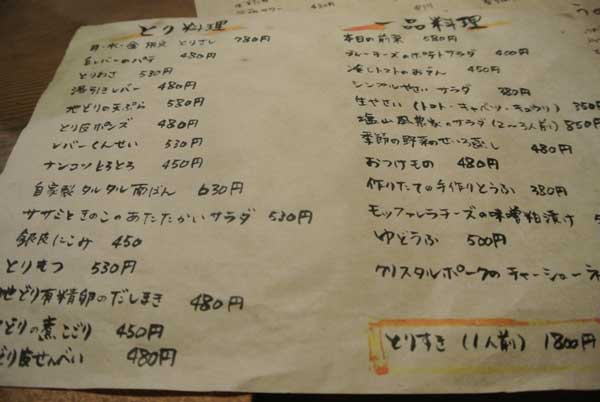 とり料理
月・水・金 限定 とりさし 780円
白レバーのパテ 480円
とりわさ 530円
湯引きレバー 480円
地どりの天ぷら 580円
とり皮ポンズ 480円
レバーくんせい 530円
ナンコツとろとろ 450円
自家製 タルタル南ばん 630円
ササミときのこのあたたかいサラダ 530円
銀皮にこみ 450
とりもつ 530円
地どり有精卵のだしまき 480円
どりの煮こごり 450円
どり皮せんべい 480円
一品料理
本日の前菜 580円
ブルーチーズのポテトサラダ 400円
冷しトマトのおでん 450円
シンプルやさいサラダ 380円
生やさい(トマト・キャベツ・キュウリ) 350
塩山風農家のサラダ(2〜3人前) 850円
季節の野菜のせいろ蒸し 480円
おつけもの 480円
作りたての手作りとうふ 380円
モッツァレラチーズの味噌粕漬け
ゆどうふ 500円
クリスタルポークのチャーシュー
とりすき(1人前) 1800円